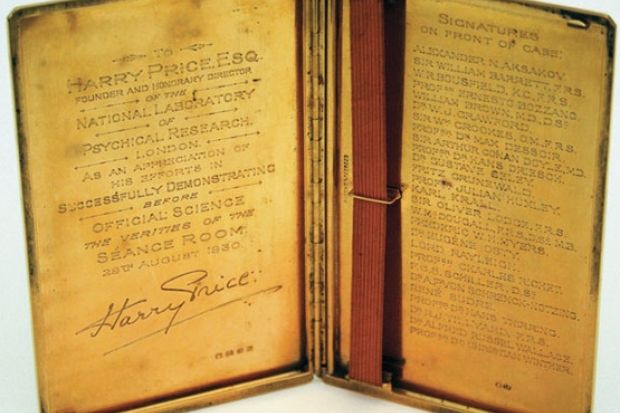 TO
HARRY PRICE, ESQ.
FOUNDER AND HONORARY DIRECTOR
OF THE
NATIONAL LABORATORY
OF
PSYCHICAL RESEARCH.
LONDON.
AS AN APPRECIATION OF
HIS EFFORTS IN
SUCCESSFULLY DEMONSTRATING
BEFORE
OFFICIAL SCIENCE
THE VERITIES OF THE
SÉANCE ROOM.
29TH AUGUST 1930.
Harry Price.
SIGNATURES
ON FRONT OF CASE:
ALEXANDER N. AKSAKOV.
SIR WILLIAM BARRETT, F.R.S.
W. R. BOUSFIELD, K.C., F.R.S.
PROFSR ERNESTO BOZZANO.
WILLIAM BROWN, M.D., D.SC
DR W. J. CRAWFORD.
SIR WM CROOKES, O.M., F.R.S.
PROFSR DR MAX DESSOIR.
SIR ARTHUR CONAN DOYLE, M.D.
PROFSR DR HANS DRIESCH.
DR GUSTAVE GELEY.
FRITZ GRUNEWALD.
PROFSR JULIAN HUXLEY.
KARL KRALL.
SIR OLIVER LODGE, F.R.S.
W. MCDOUGALL, F.R.S., D.SC, M.B.
FREDERIC W. H. MYERS.
DR EUGÈNE OSTY.
LORD RAYLEIGH.
PROFSR CHARLES RICHET.
F. C. S. SCHILLER, D.SC
DR A. F. VON SCHRENCK-NOTZING.
RENÉ SUDRE.
PROFSR DR HANS THIRRING.
DR ALFRED RUSSEL WALLACE.
PROFSR DR CHRISTIAN WINTHER.